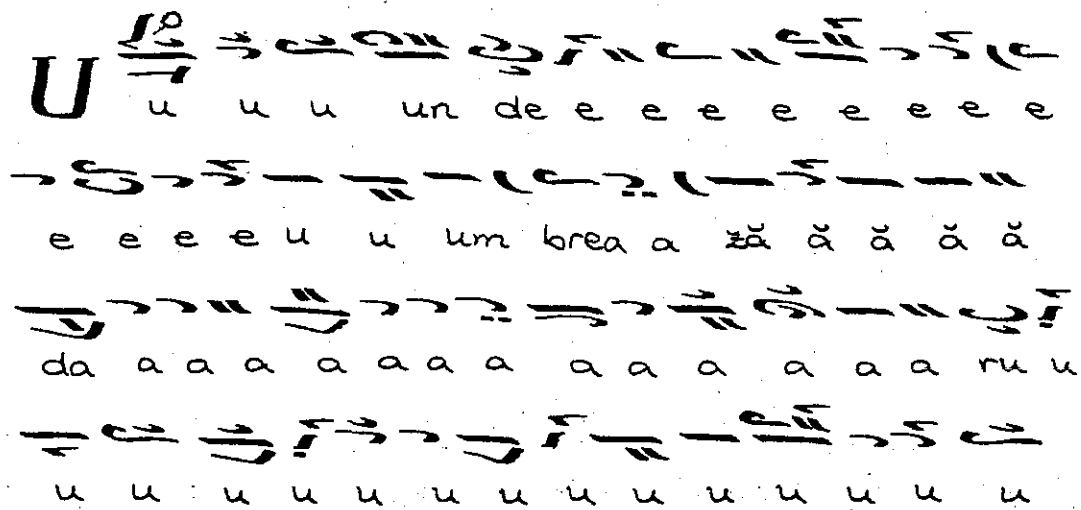 U u u u un de e e e e e e e e
e e e e u u um brea a ză ă ă ă ă
da a a a a a a a a a a a a a ru u
u u u u u u u u u u u u u u